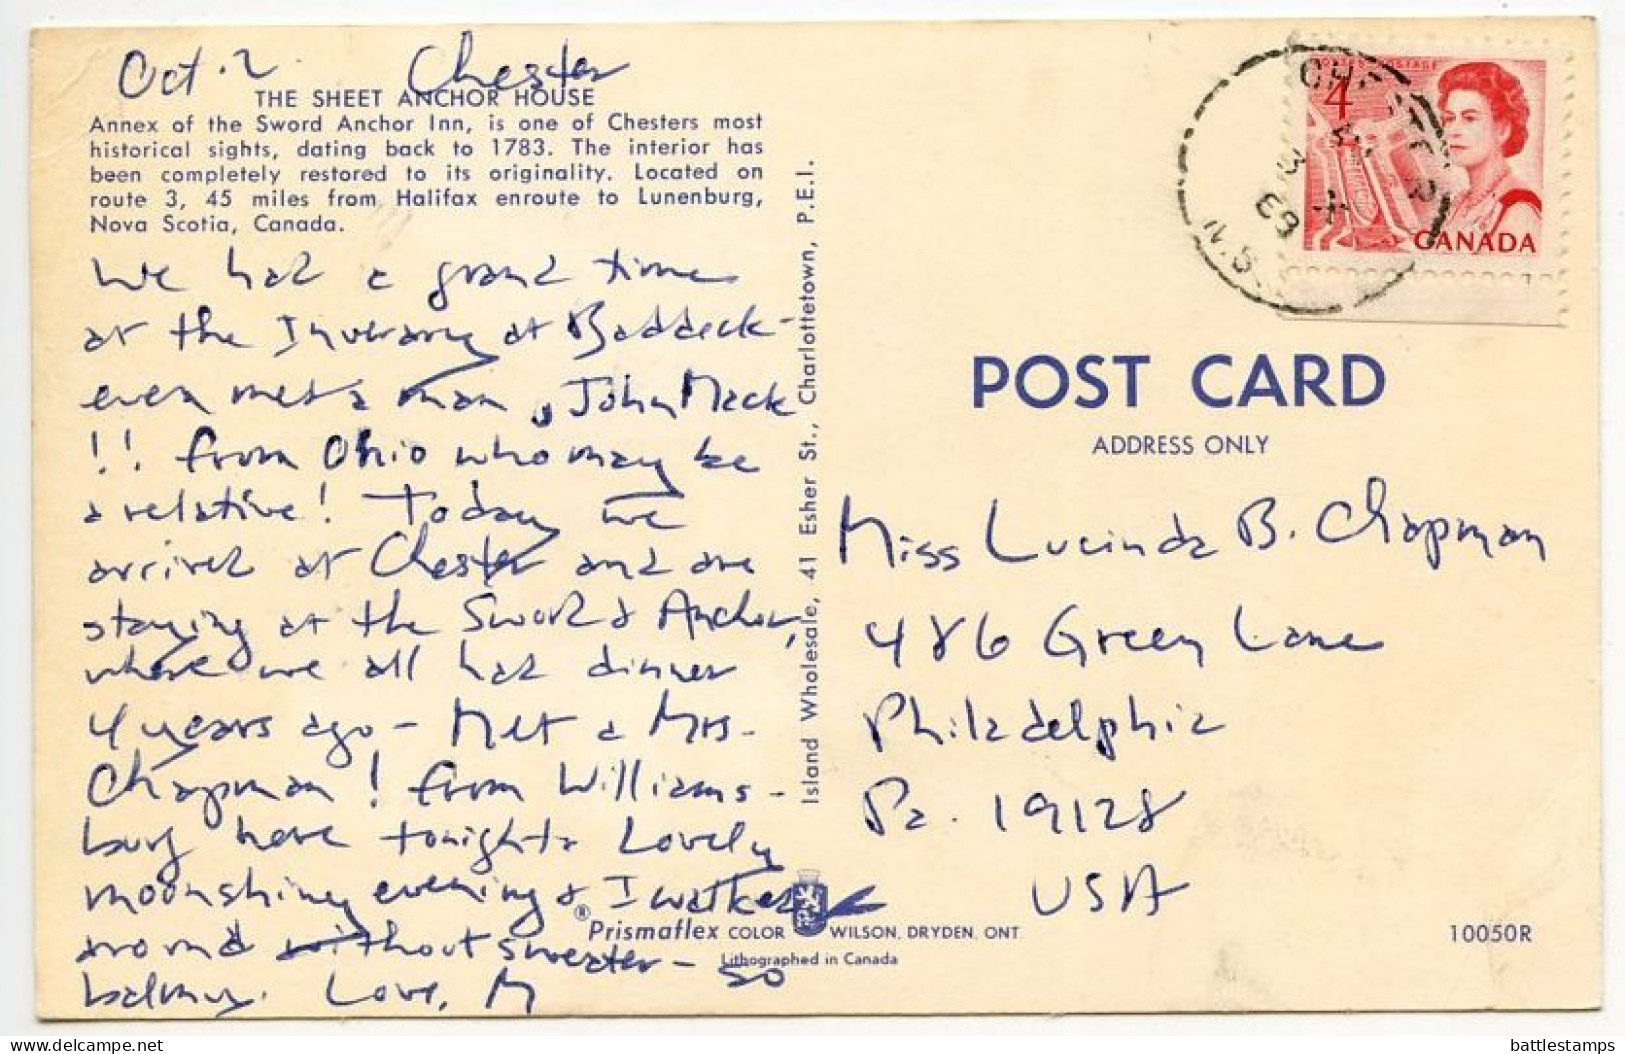 Oct. 2 Chester
THE SHEET ANCHOR HOUSE
Annex of the Sword Anchor Inn, is one of Chesters most
historical sights, dating back to 1783. The interior has
been completely restored to its originality. Located on
route 3, 45 miles from Halifax enroute to Lunenburg,
Nova Scotia, Canada.
We had a grand time
at the Inverary at Baddeck-
even met a man, John Mack
!! from Ohio who may be
a relative! Today we
arrived at Chester and are
staying at the Sword & Anchor,
where we all had dinner
4 years ago - Met a Mrs.
Chapman! from Williams-
burg here tonight. Lovely
moonshiny evening & I walked
around without sweater - so
balmy. Love, M
Island Wholesale, 41 Esher St., Charlottetown, P.E.I.
POSTES POSTAGE
4
CANADA
N.S.
POST CARD
ADDRESS ONLY
Miss Lucinda B. Chapman
486 Green Lane
Philadelphia
Pa. 19128
USA
® Prismaflex COLOR WILSON, DRYDEN, ONT.
Lithographed in Canada
10050R
delcampe.net
battlestamps